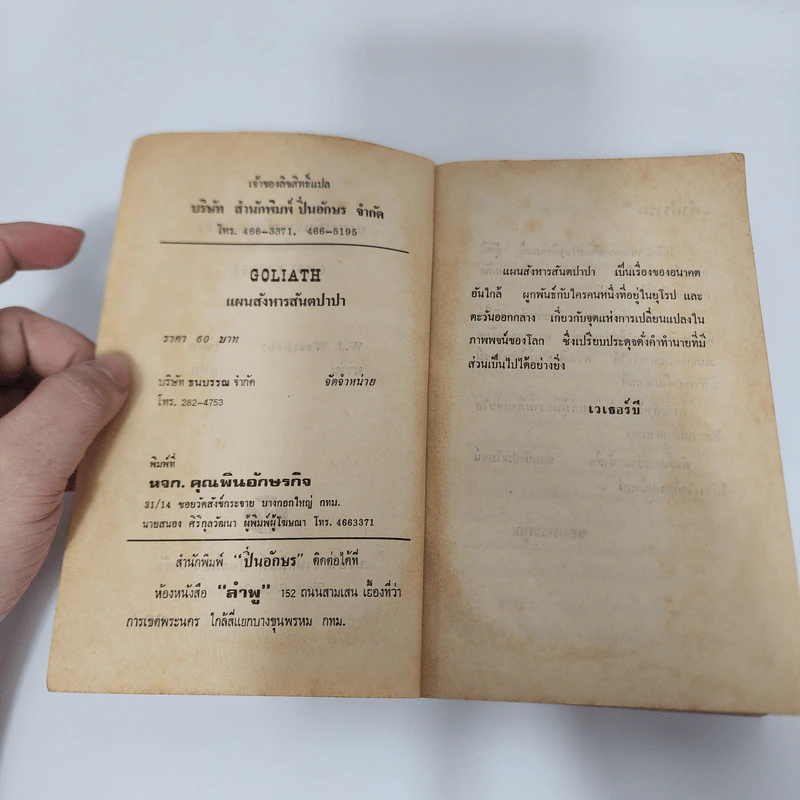 เจ้าของลิขสิทธิ์แปล
บริษัท สำนักพิมพ์ ปิ่นอักษร จำกัด
โทร. 466-3371, 466-5195
GOLIATH
แผนสังหารสันตปาปา
ราคา 60 บาท
บริษัท ธนบรรณ จำกัด จัดจำหน่าย
โทร. 282-4753
พิมพ์ที่
หจก. คุณพินอักษรกิจ
31/14 ซอยวัดสังข์กระจาย บางกอกใหญ่ กทม.
นายสนอง ศิริกุลวัฒนา ผู้พิมพ์ผู้โฆษณา โทร. 4663371
สำนักพิมพ์ "ปิ่นอักษร" ติดต่อได้ที่
ห้องหนังสือ "ลำพู" 152 ถนนสามเสน เยื้องที่ว่า
การเขตพระนคร ใกล้สี่แยกบางขุนพรหม กทม.
แผนสังหารสันตปาปา เป็นเรื่องของอนาคต
อันใกล้ ผูกพันธ์กับใครคนหนึ่งที่อยู่ในยุโรป และ
ตะวันออกกลาง เกี่ยวกับจุดแห่งการเปลี่ยนแปลงใน
ภาพพจน์ของโลก ซึ่งเปรียบประดุจดั่งคำทำนายที่มี
ส่วนเป็นไปได้อย่างยิ่ง
เวเธอร์บี